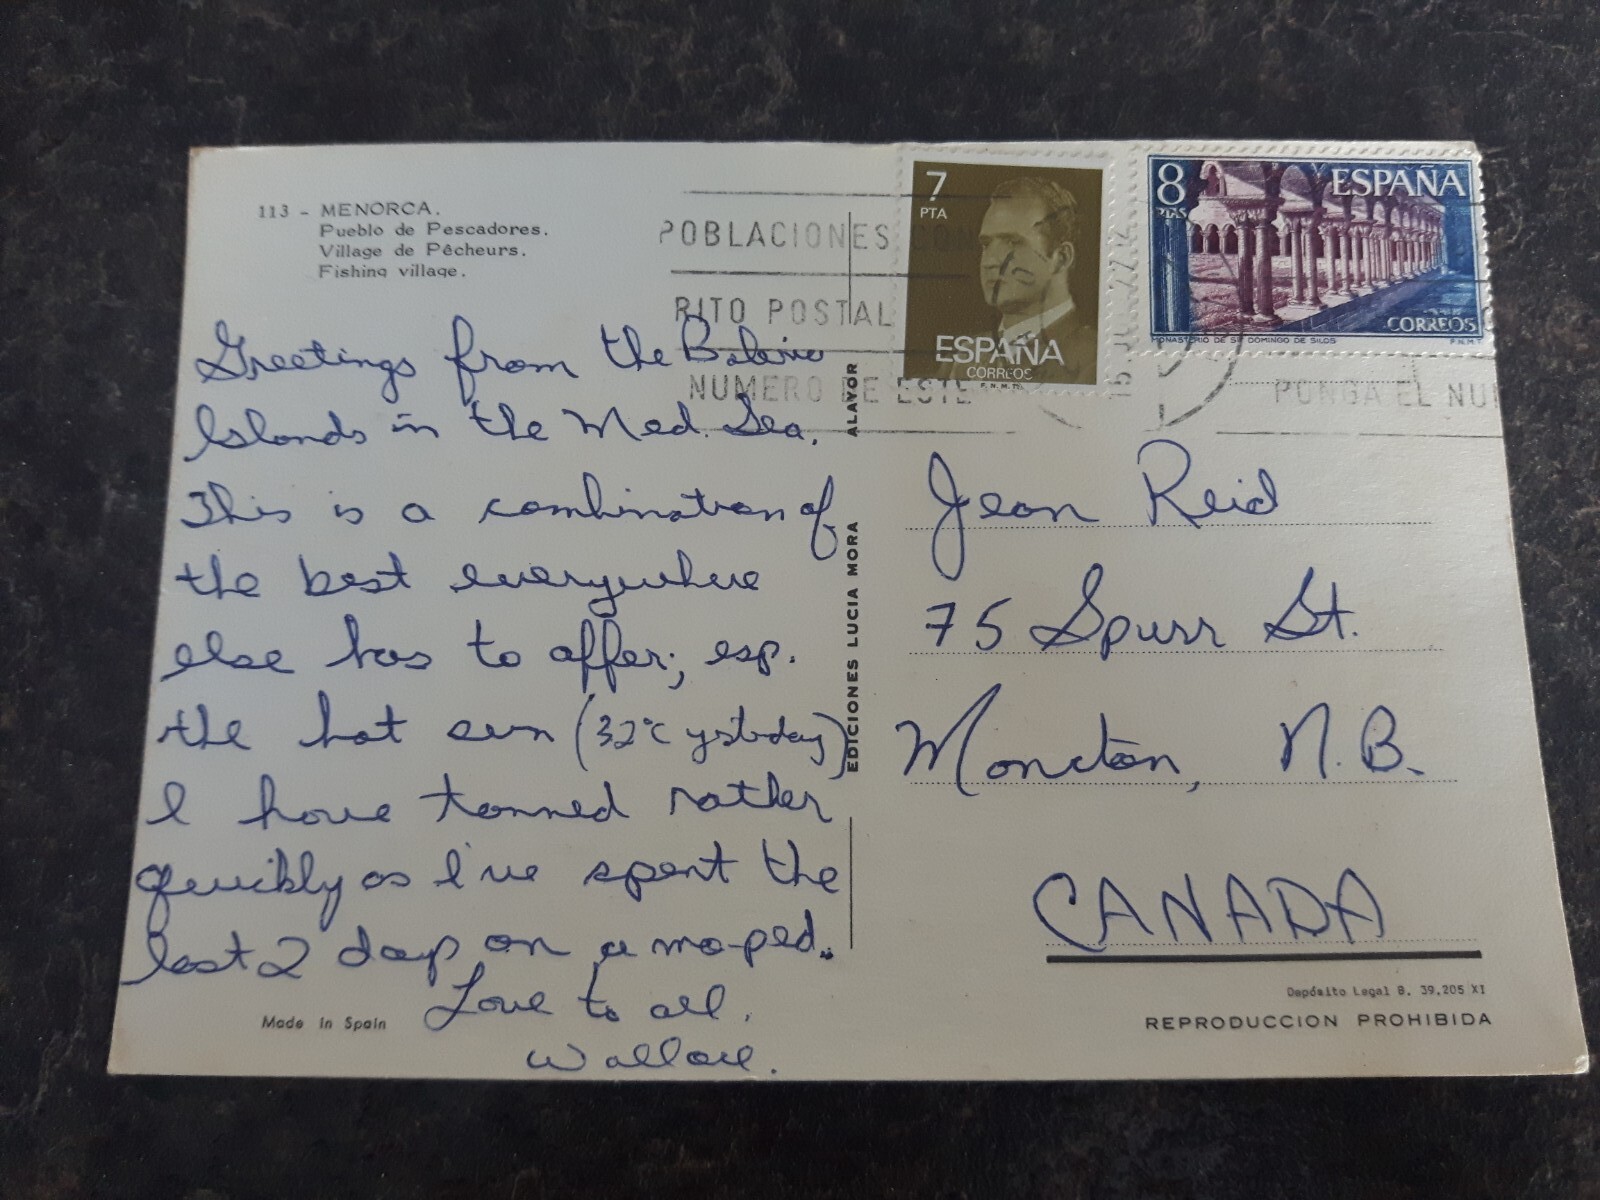 113 - MENORCA.
Pueblo de Pescadores.
Village de Pêcheurs.
Fishing village.
Greetings from the Baleric
Islands in the Med. Sea.
This is a combination of
the best everywhere
else has to offer; esp.
the hot sun (32°C ysterday)
I have tanned rather
quickly as I've spent the
last 2 days on a mo-ped.
Love to all,
Wallace.
Made in Spain
EDICIONES LUCIA MORA ALAYOR
POBLACIONES CON
RITO POSTAL
NUMERO DE ESTE
7
PTA
ESPAÑA
CORREOS
F.N.M.T.
8
PTAS
ESPAÑA
CORREOS
MONASTERIO DE Sto DOMINGO DE SILOS
F.N.M.T.
PONGA EL NU
Jean Reid
75 Spurr St.
Moncton, N.B.
CANADA
Depósito Legal B. 39.205 XI
REPRODUCCION PROHIBIDA